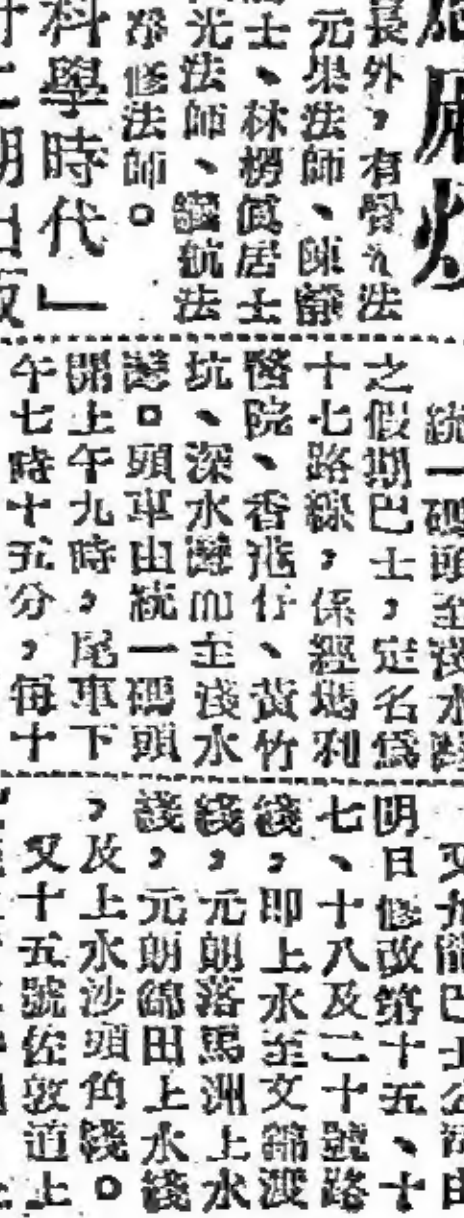 長外，有
元果法師、陳靜
士、林楞眞居士
光法師、繼航法
淨修法師。
科學時代」
統一碼頭至淺水灣
之假期巴士，定名爲
十七路線，係經瑪利
醫院、香港仔、黃竹
坑、深水灣而至淺水
灣。頭車由統一碼頭
開上午九時，尾車下
午七時十五分，每十
又九龍巴士公司由
明日修改第十五、十
七、十八及二十號路
綫，即上水至文錦渡
綫，元朗落馬洲上水
綫，元朗錦田上水綫
，及上水沙頭角綫。
又十五號佐敦道上